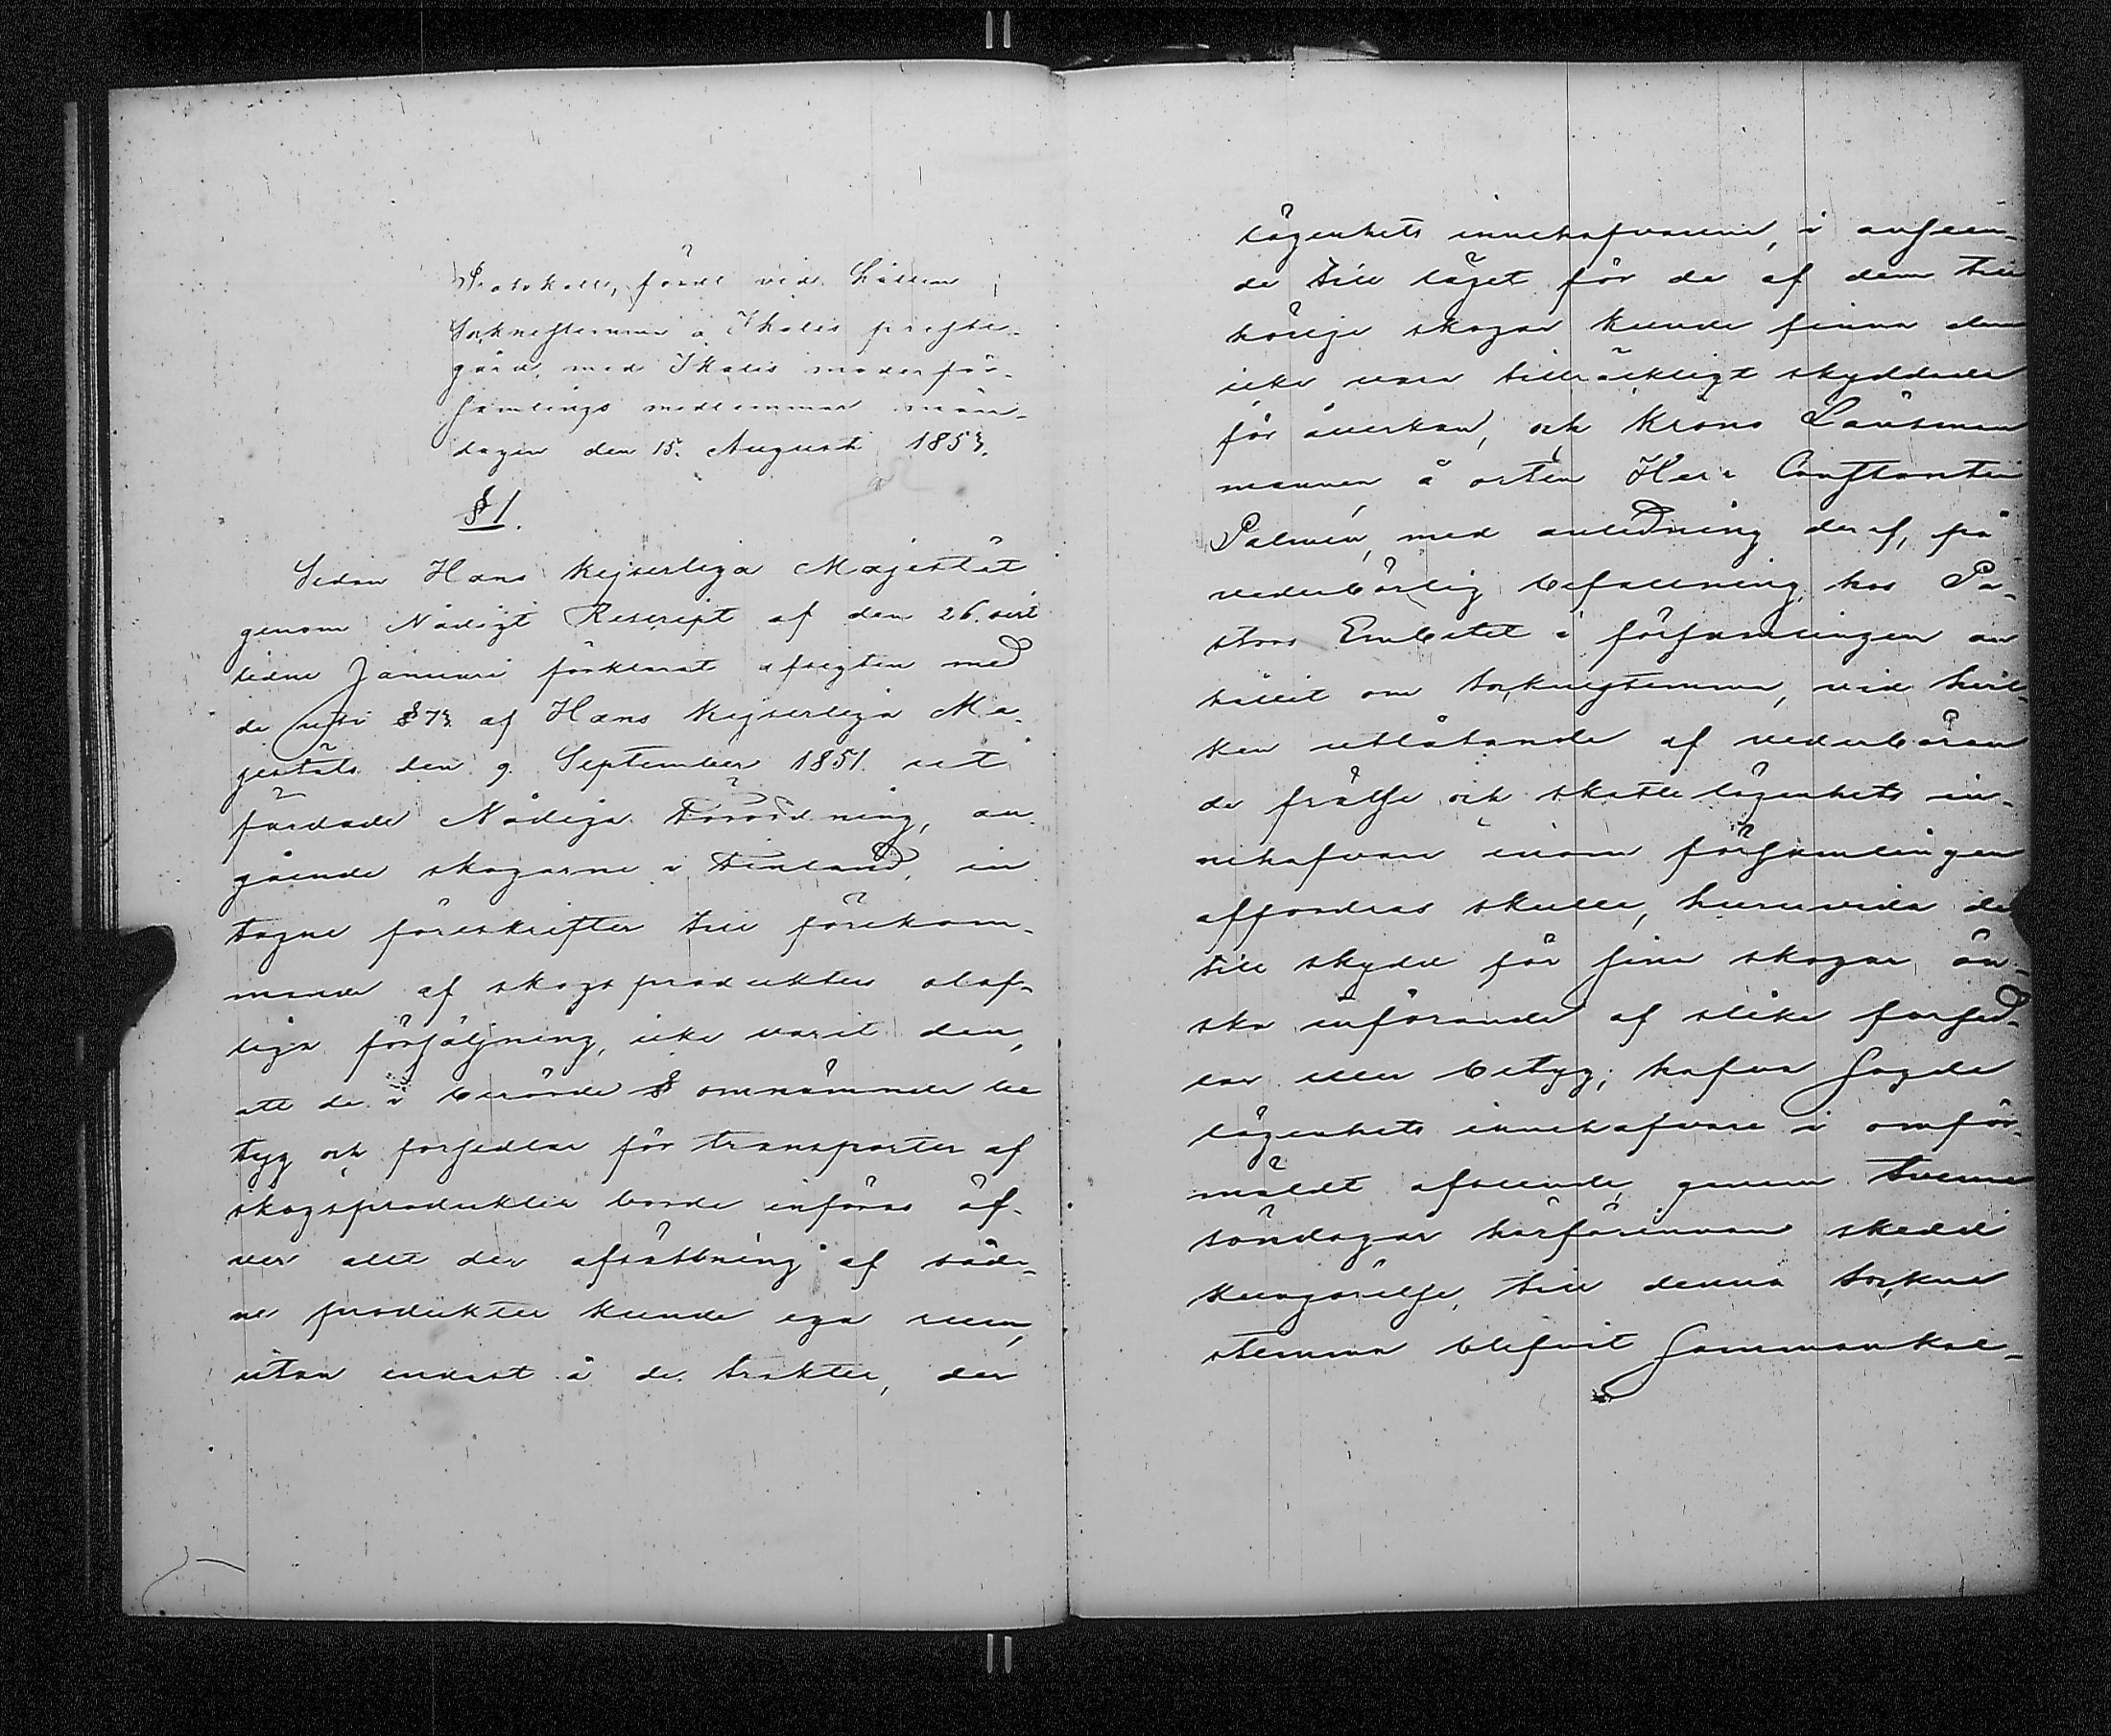 Protokoll, fördt vid hållen
Sockenstemma å Ikalis preste-
gård, med Ikalis moderför-
samlings medlemmar mån-
dagen den 15. Augusti 1853.
§ 1.
Sedan Hans Kejserliga Majestät
genom Nådigt Rescript af den 26. sist
lidne Januari förklarat afsigten med
de uti § 73 af Hans Kejserliga Ma-
jestäts den 9. September 1851 ut
färdade Nådiga Förordning, an-
gående skogarne i Finland, in
tagne föreskrifter till förekom-
mande af skogsprodukters olaf-
liga försäljning, icke varit den,
att de i berörde § omnämnde be
tyg och forsedlar för transporter af
skogsprodukter borde införas öf-
ver allt der afsättning af såda-
ne produkter kunde ega rum,
utan endast å de trakter, der
lägenhets innehafvarene, i anseen-
de till läget för de af dem till
hörige skogar kunde finna dem
icke vara tillräckligt skyddade
för åverkan, och Krono Länsman
mannen å orten Herr Constantin
Palmén, med anledning deraf, på
vederbörlig befallning, hos Pa-
stors Embetet i församlingen an
hållit om sockenstemma, vid hvil-
ken utlåtande af vederböran
de frälse och skatte lägenhets in-
nehafvare inom församlingen
affordras skulle, huruvida de
till skydd för sina skogar ön-
ska införande af slike forsed-
lar eller betyg; hafva sagde
lägenhets innehafvare i omför-
mäldt afseende, genom tvenne
söndagar härförinnan skedd
kungörelse, till denna socken
stemma blifvit sammankal-